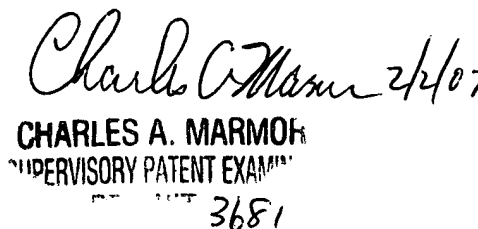 Charles A Marmor 2/2/07
CHARLES A. MARMOR
SUPERVISORY PATENT EXAMIN
3681